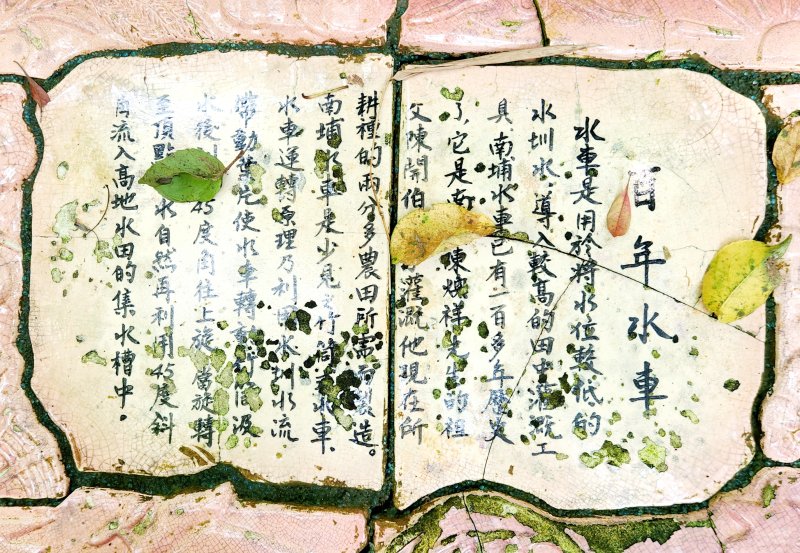 百年水車
水車是用於將水位較低的
水圳水,導入較高的田中灌溉工
具,南埔水車已有一百多年歷史
了,它是南陳煥祥先生的祖
父陳開伯灌溉他現在所
耕種的兩分多農田所需而製造。
南埔水車是少見之竹筒式水車,
水車運轉原理乃利用水圳水流
帶動葉片使水車轉動竹筒汲
水後45度角往上旋,當旋轉
至頂點水自然再利用45度斜
角流入高地水田的集水槽中。